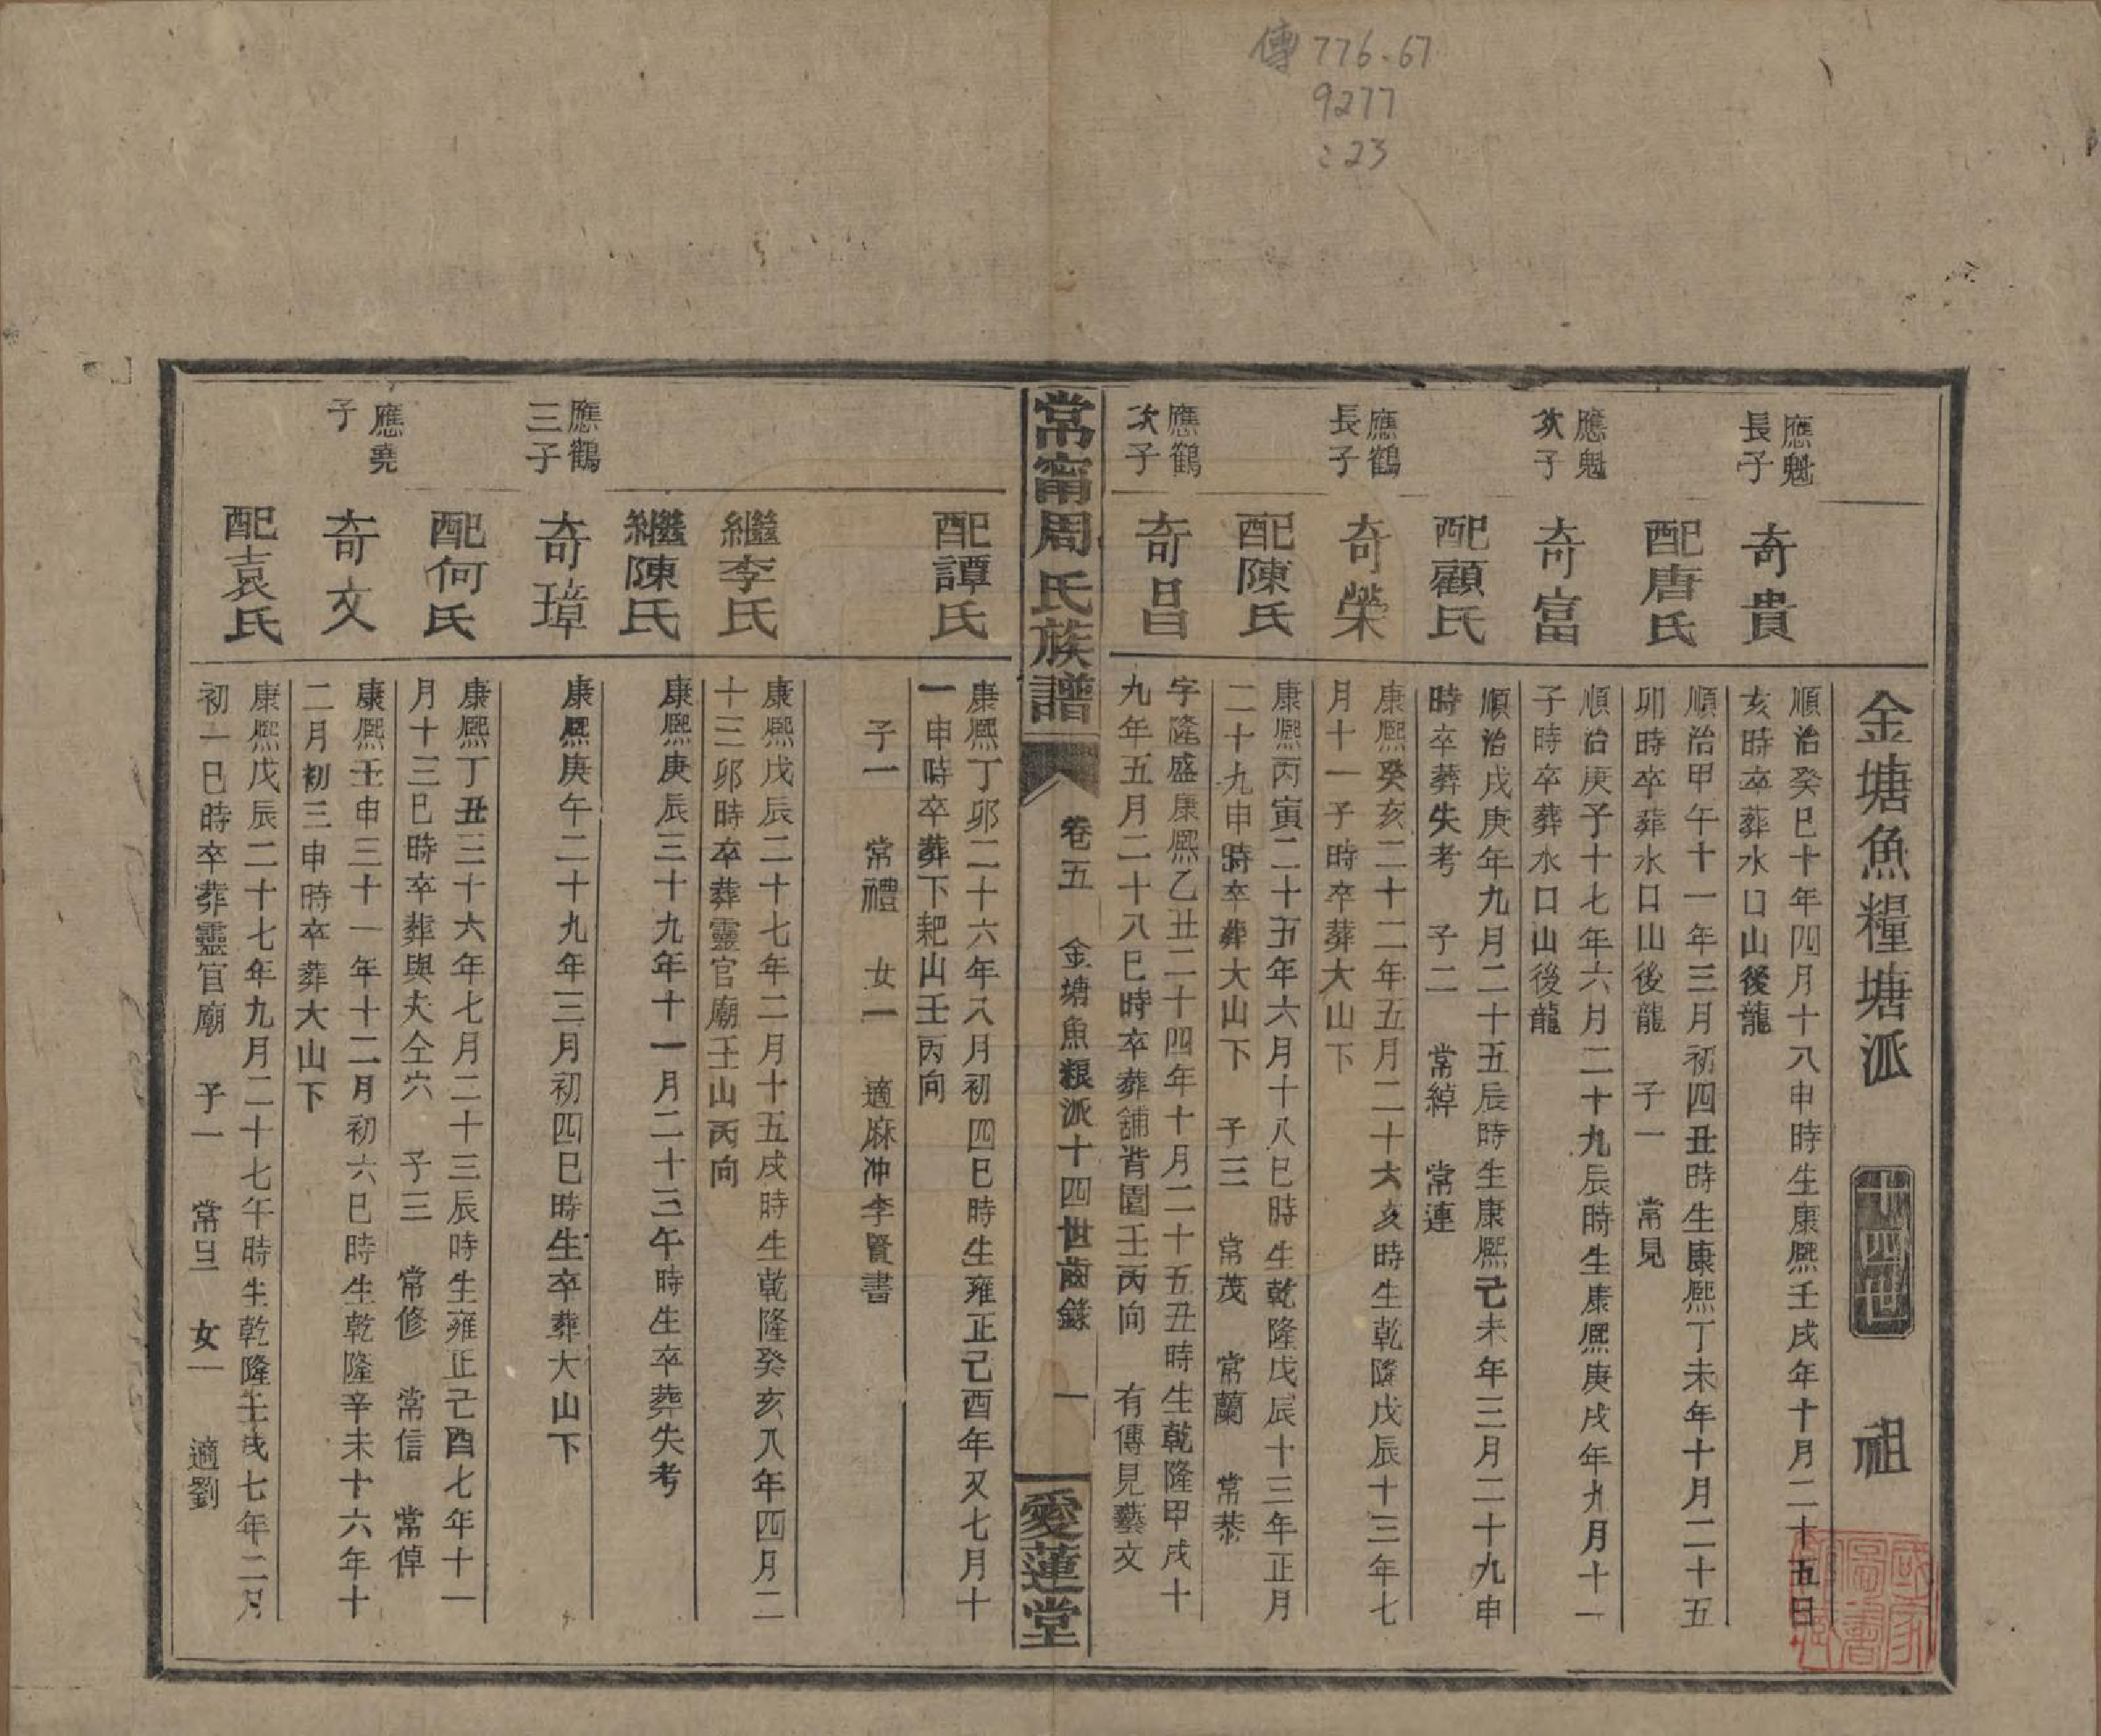 傳776.67
9277
:23
金塘魚糧塘派 十四世 祖
應魁長子
奇貴
順治癸巳十年四月十八申時生康熙壬戌年十月二十五日
亥時卒葬水口山後龍
配唐氏
順治甲午十一年三月初四丑時生康熙丁未年十月二十五
卯時卒葬水口山後龍 子一 常見
應魁次子
奇富
順治庚子十七年六月二十九辰時生康熙庚戌年九月十一
子時卒葬水口山後龍
配顧氏
順治戌庚年九月二十五辰時生康熙己未年三月二十九申
時卒葬失考 子二 常綽 常連
應鶴長子
奇榮
康熙癸亥二十二年五月二十六亥時生乾隆戊辰十三年七
月十一子時卒葬大山下
配陳氏
康熙丙寅二十五年六月十八巳時生乾隆戊辰十三年正月
二十九申時卒葬大山下 子三 常茂 常蘭 常恭
應鶴次子
奇昌
字隆盛康熙乙丑二十四年十月二十五丑時生乾隆甲戌十
九年五月二十八巳時卒葬舖背園壬丙向 有傳見藝文
常甯周氏族譜 卷五 金塘魚粮派十四世齒錄 一 愛蓮堂
配譚氏
康熙丁卯二十六年八月初四巳時生雍正己酉年又七月十
一申時卒葬下耙山壬丙向
子一 常禮 女一 適麻冲李賢書
繼李氏
康熙戊辰二十七年二月十五戌時生乾隆癸亥八年四月二
十三卯時卒葬靈官廟壬山丙向
繼陳氏
康熙庚辰三十九年十一月二十三午時生卒葬失考
應鶴三子
奇璋
康熙庚午二十九年三月初四巳時生卒葬大山下
配何氏
康熙丁丑三十六年七月二十三辰時生雍正己酉七年十一
月十三巳時卒葬與夫仝穴 子三 常修 常信 常倬
應堯子
奇文
康熙壬申三十一年十二月初六巳時生乾隆辛未十六年十
二月初三申時卒葬大山下
配袁氏
康熙戊辰二十七年九月二十七午時生乾隆壬戌七年二月
初一巳時卒葬靈官廟 子一 常 女一 適劉
國家圖書館藏